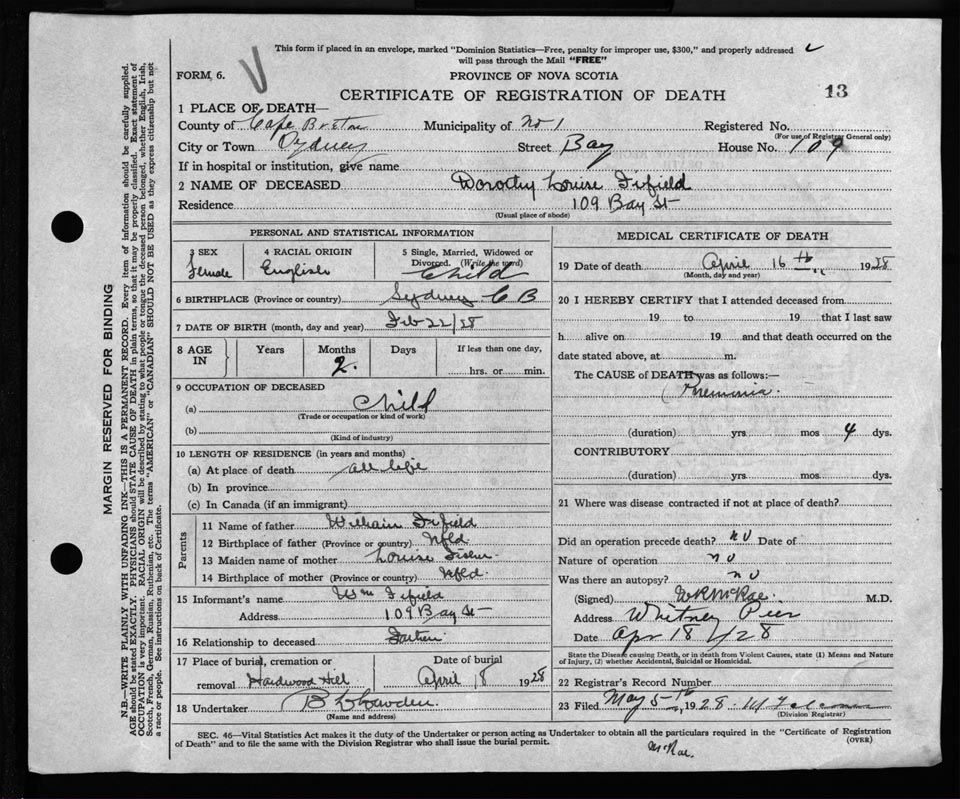 This form if placed in an envelope, marked "Dominion Statistics—Free, penalty for improper use, $300," and properly addressed
will pass through the Mail "FREE"
FORM 6.
PROVINCE OF NOVA SCOTIA
CERTIFICATE OF REGISTRATION OF DEATH
13
1 PLACE OF DEATH—
County of Cape Breton Municipality of No 1 Registered No.
(For use of Registrar General only)
City or Town Sydney Street Bay House No. 109
If in hospital or institution, give name
2 NAME OF DECEASED Dorothy Louise Fifield
Residence 109 Bay St
(Usual place of abode)
PERSONAL AND STATISTICAL INFORMATION
3 SEX 4 RACIAL ORIGIN 5 Single, Married, Widowed or
Divorced. (Write the word)
Female English Child
6 BIRTHPLACE (Province or country) Sydney C B
7 DATE OF BIRTH (month, day and year) Feb 22/28
8 AGE IN Years Months Days If less than one day,
2. hrs. or min.
9 OCCUPATION OF DECEASED
(a) Child
(Trade or occupation or kind of work)
(b)
(Kind of industry)
10 LENGTH OF RESIDENCE (in years and months)
(a) At place of death all life
(b) In province
(c) In Canada (if an immigrant)
Parents
11 Name of father William Fifield
12 Birthplace of father (Province or country) Nfld
13 Maiden name of mother Louise
14 Birthplace of mother (Province or country) Nfld.
15 Informant's name Wm Fifield
Address 109 Bay St
16 Relationship to deceased Father
17 Place of burial, cremation or Date of burial
removal Hardwood Hill April 18 1928
18 Undertaker
(Name and address)
MEDICAL CERTIFICATE OF DEATH
19 Date of death April 16th 1928
(Month, day and year)
20 I HEREBY CERTIFY that I attended deceased from
19 to 19 that I last saw
h alive on 19 and that death occurred on the
date stated above, at m.
The CAUSE of DEATH was as follows:—
Pneumonia
(duration) yrs mos 4 dys.
CONTRIBUTORY
(duration) yrs mos dys.
21 Where was disease contracted if not at place of death?
Did an operation precede death? no Date of
Nature of operation no
Was there an autopsy? no
(Signed) McRae M.D.
Address Whitney Pier
Date Apr 18/28
State the Disease causing Death, or in death from Violent Causes, state (1) Means and Nature
of Injury, (2) whether Accidental, Suicidal or Homicidal.
22 Registrar's Record Number
23 Filed May 5th 1928
(Division Registrar)
SEC. 46—Vital Statistics Act makes it the duty of the Undertaker or person acting as Undertaker to obtain all the particulars required in the "Certificate of Registration
of Death" and to file the same with the Division Registrar who shall issue the burial permit.
(OVER)
McRae.
MARGIN RESERVED FOR BINDING
N.B.—WRITE PLAINLY WITH UNFADING INK—THIS IS A PERMANENT RECORD. Every item of information should be carefully supplied.
AGE should be stated EXACTLY. PHYSICIANS should STATE CAUSE OF DEATH in plain terms, so that it may be properly classified. Exact statement of
OCCUPATION is very important. RACIAL ORIGIN will be described by stating to what people or tongue the deceased person belonged, whether English, Irish,
Scotch, French, German, Russian, Ruthenian, etc. The terms "AMERICAN" or "CANADIAN" SHOULD NOT BE USED as they express citizenship but not
a race or people. See instructions on back of Certificate.